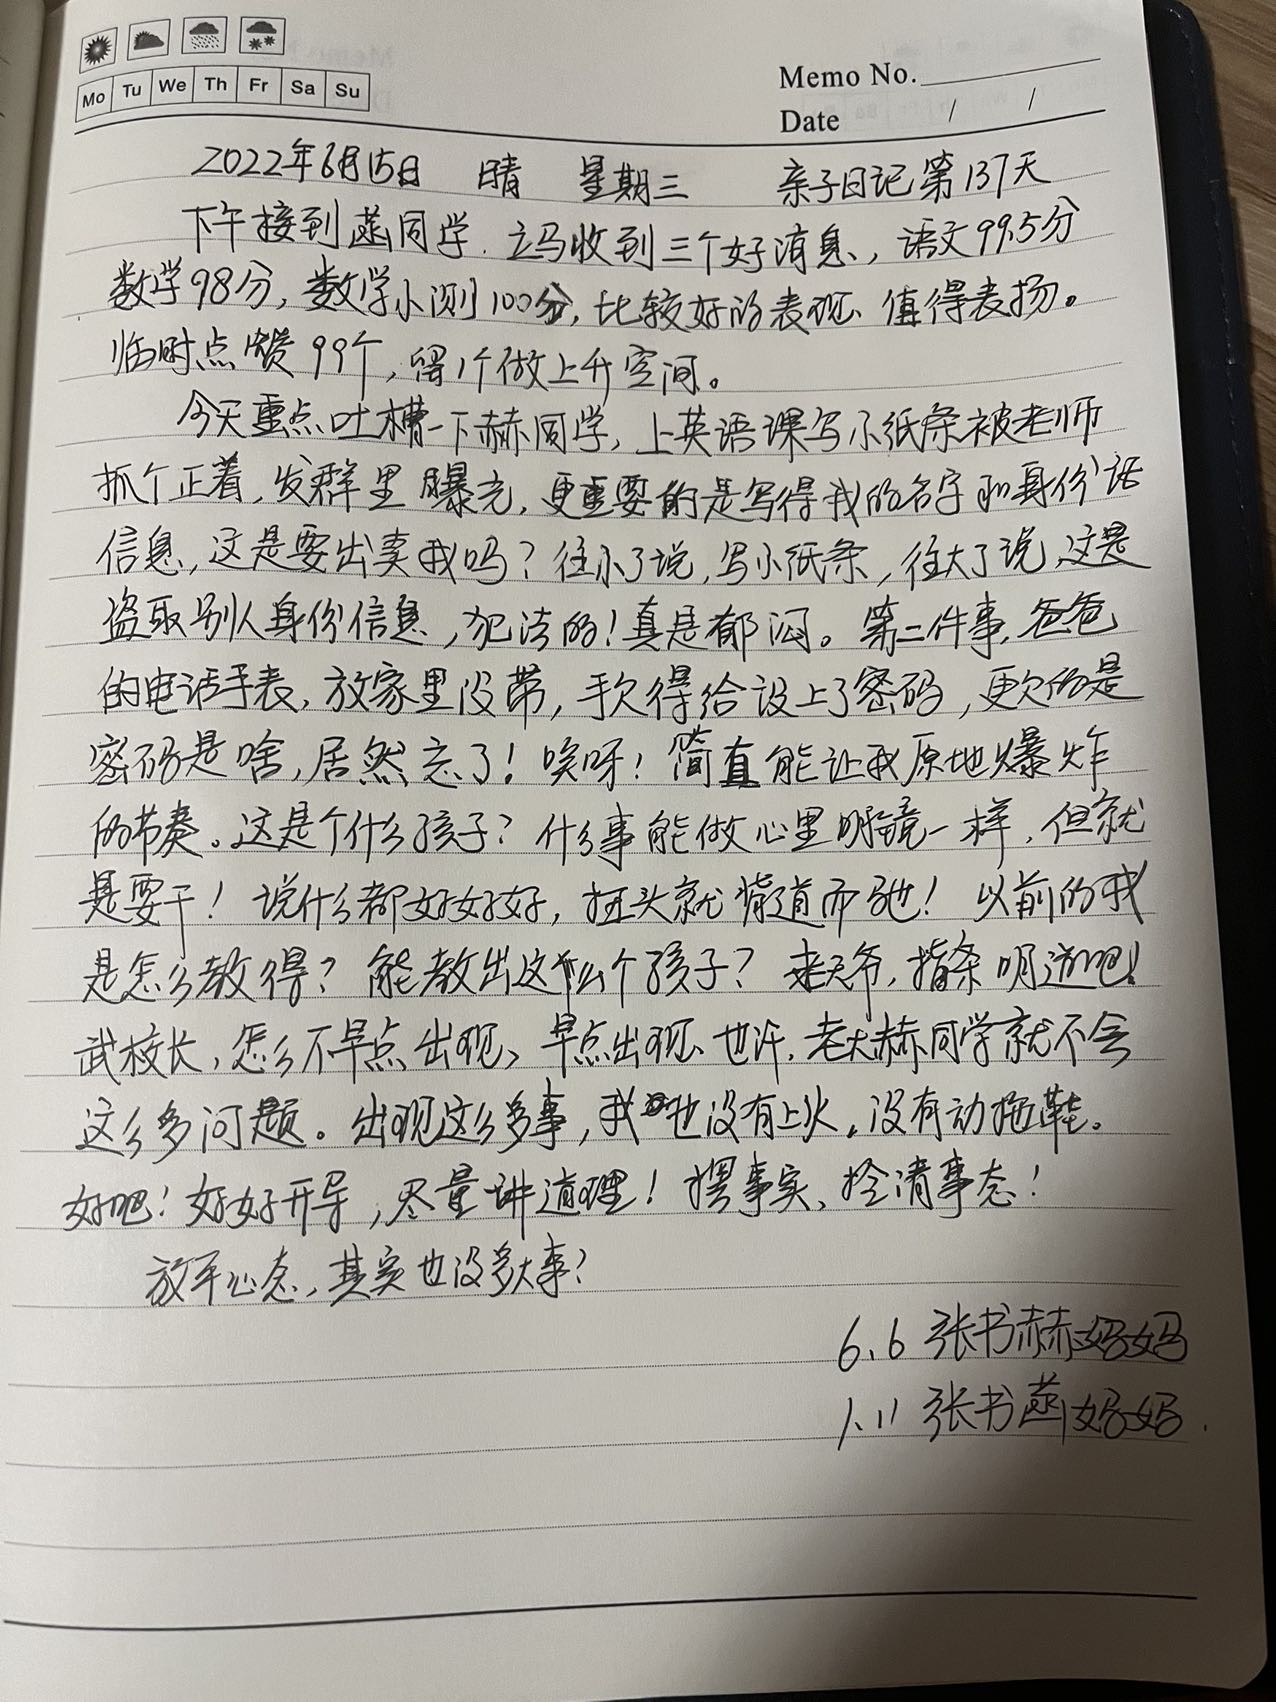 Mo Tu We Th Fr Sa Su
Memo No.
Date / /
2022年6月15日 晴 星期三 亲子日记第137天
下午接到菡同学,立马收到三个好消息,语文99.5分
数学98分,数学小测100分,比较好的表现 值得表扬。
临时点赞99个,留1个做上升空间。
今天重点吐槽一下赫同学,上英语课写小纸条被老师
抓个正着,发群里曝光,更重要的是写得我的名字和身份证
信息,这是要出卖我吗?往小了说,写小纸条,往大了说,这是
盗取别人身份信息,犯法的!真是郁闷。第二件事,爸爸
的电话手表,放家里没带,手欠得给设上了密码,更欠的是
密码是啥,居然忘了!唉呀!简直能让我原地爆炸
的节奏。这是个什么孩子?什么事能做心里明镜一样,但就
是要干!说什么都好好好,扭头就背道而驰!以前的我
是怎么教得?能教出这什么个孩子?老天爷,指条明道吧!
武校长,怎么不早点出现,早点出现 也许,老大赫同学就不会
这么多问题。出现这么多事,我也没有上火,没有动拖鞋。
好吧!好好开导,尽量讲道理!摆事实、捡清事态!
放平心态,其实也没多大事?
6.6 张书赫妈妈
1.11 张书菡妈妈